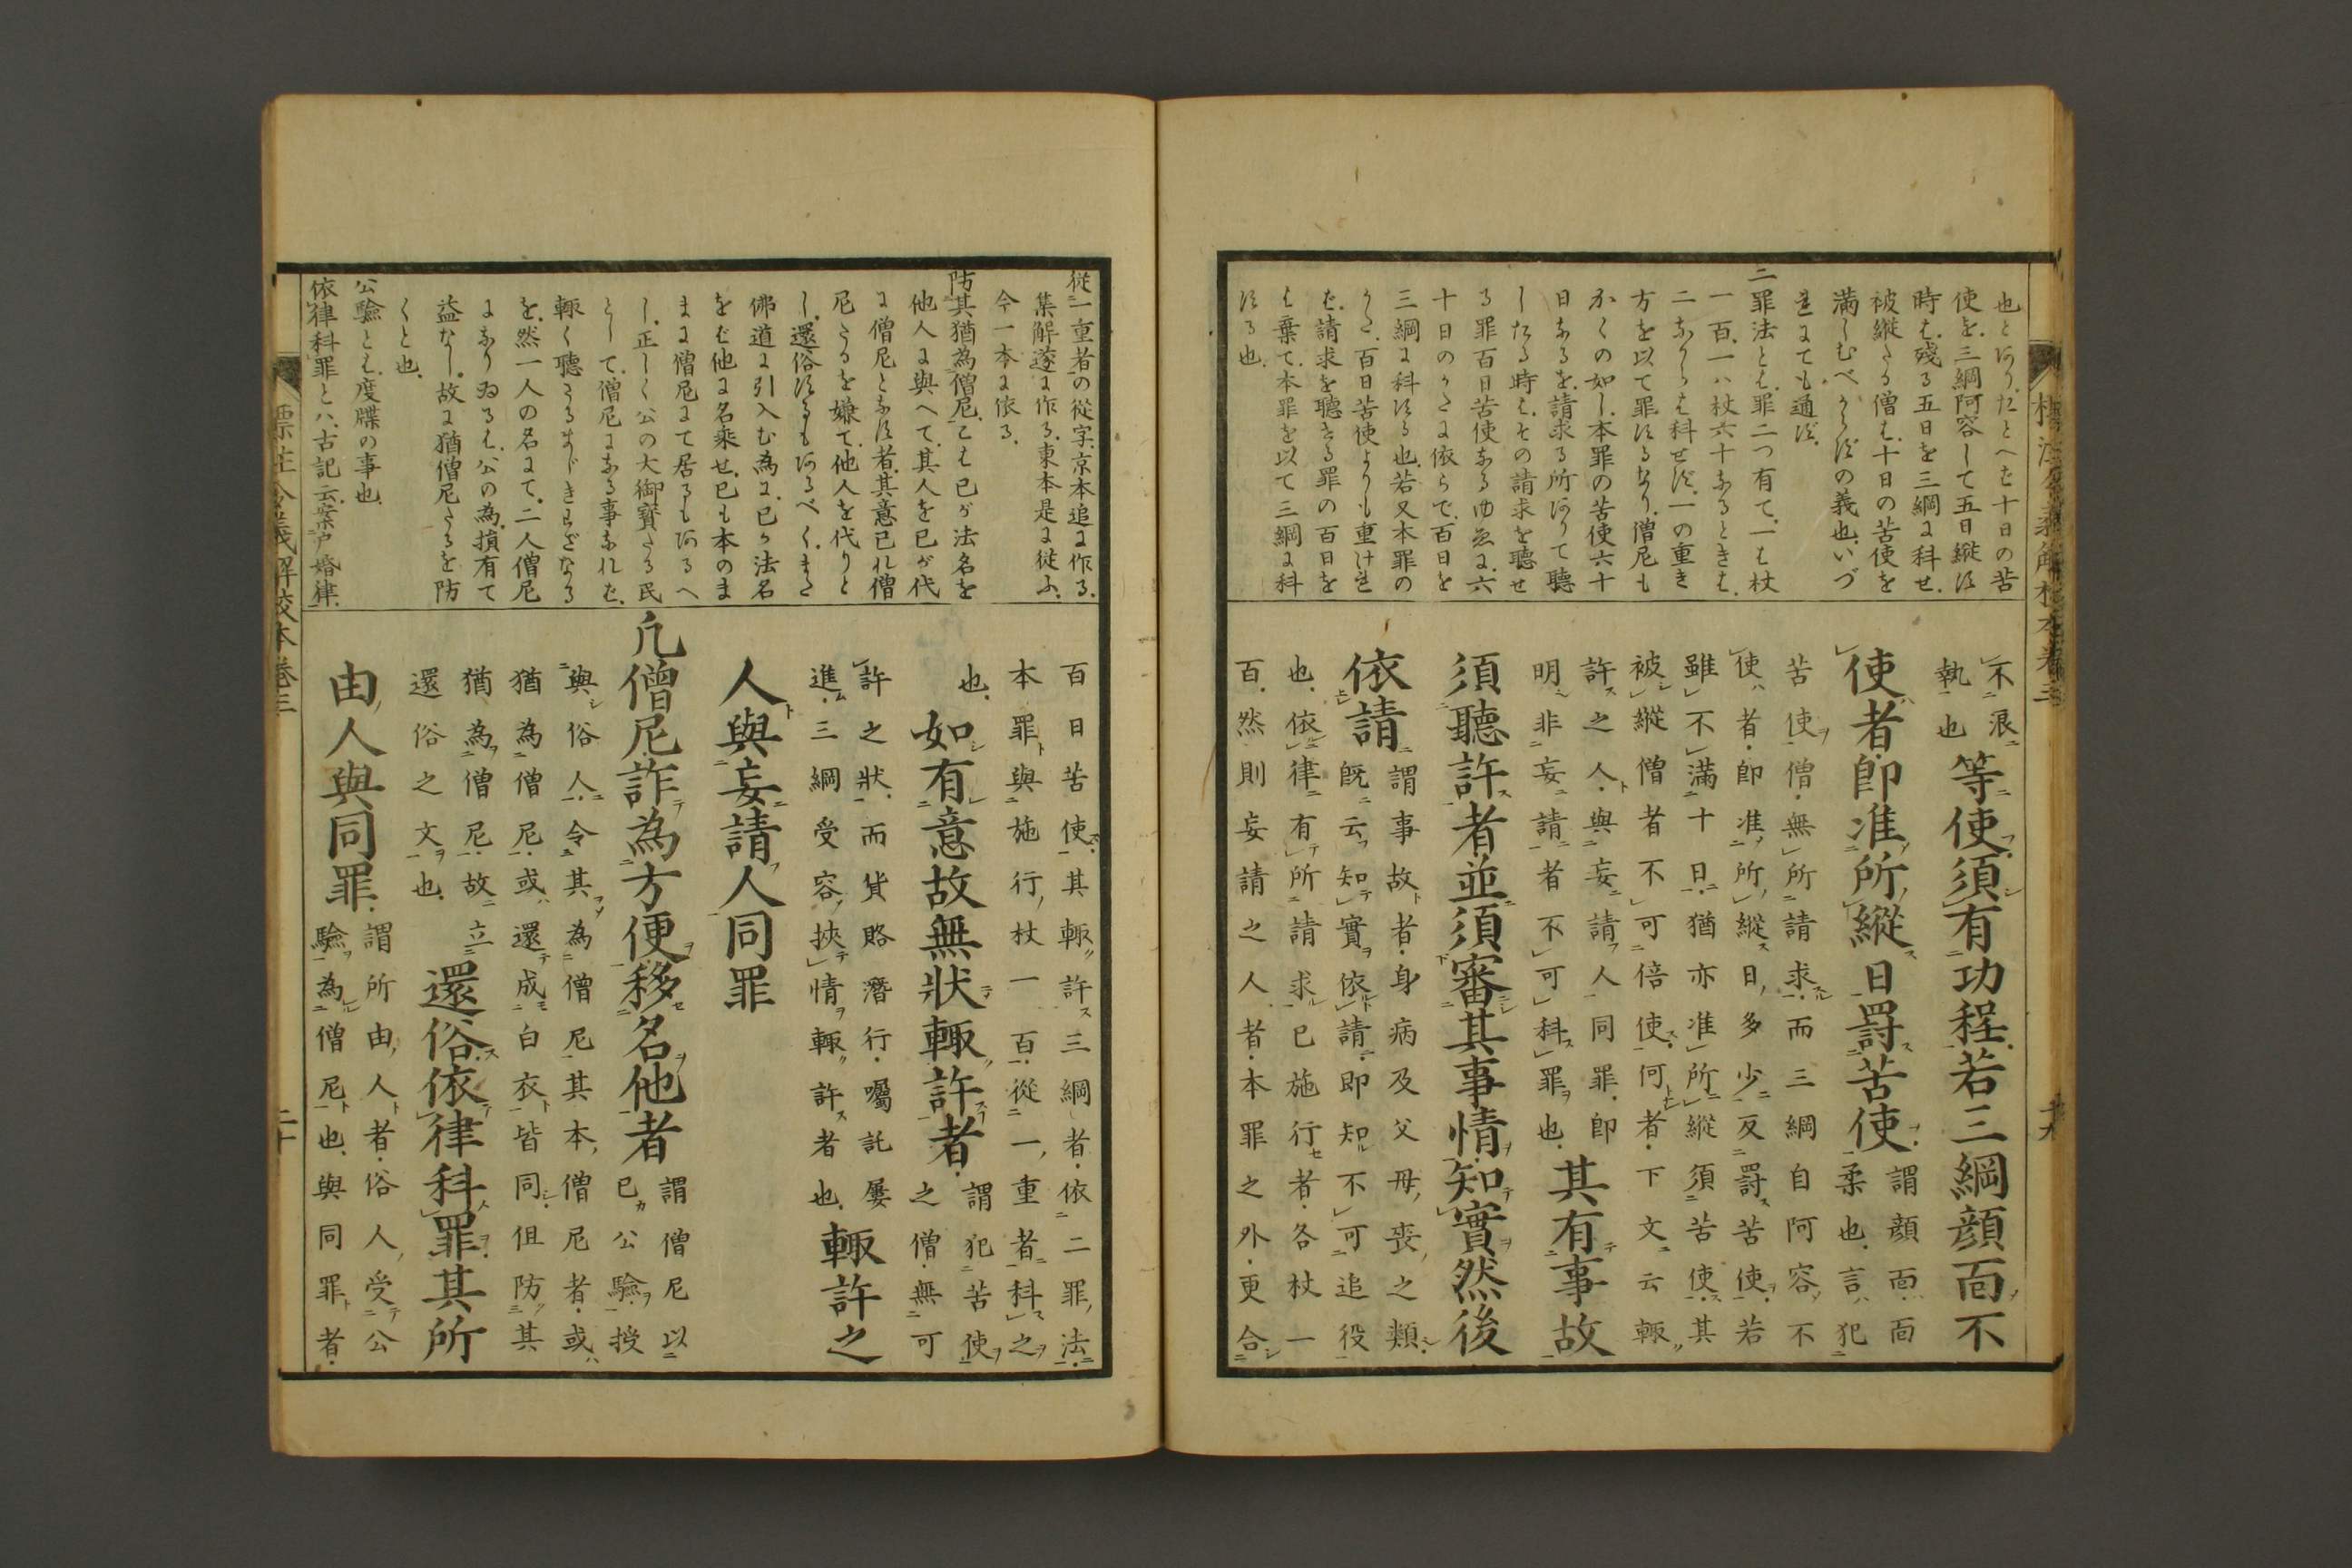 標注令義解校本卷三
十九
也とあり、たとへば十日の苦
使を、三綱阿容して五日縱す
時は、殘る五日を三綱に科せ、
被縱たる僧は、十日の苦使を
滿しむべからずの義也、いづ
れにても通ず、
二罪法とは、罪二つ有て、一は杖
一百、一ハ杖六十なるときは、
二ながらは科せず、一の重き
方を以て罪するなり、僧尼も
かくの如し、本罪の苦使六十
日なるを、請求る所ありて聽
したる時は、その請求を聽せ
る罪百日苦使なるゆゑに、六
十日のかたに依らで、百日を
三綱に科する也、若又本罪の
かた、百日苦使よりも重けれ
ば、請求を聽せる罪の百日を
は棄て、本罪を以て三綱に科
する也、
不浪
執也
等使須有功程若三綱顏面不
使者卽准所縱日罸苦使
謂顏面面
柔也言犯
苦使僧無所請求而三綱自阿容不
使者卽准所縱日多少反罸苦使若
雖不滿十日猶亦准所縱須苦使其
被縱僧者不可倍使何者下文云輙
許之人與妄請人同罪卽
明非妄請者不可科罪也
其有事故
須聽許者並須審其事情知實然後
依請
謂事故者身病及父母喪之類
旣云知實依請卽知不可追役
也依律有所請求已施行者各杖一
百然則妄請之人者本罪之外更合
從一重者の從字、京本追に作る、
集解遂に作る、東本是に從ふ、
今一本に依る、
防其猶為僧尼、こは已が法名を
他人に與へて、其人を已が代
に僧尼となす者、其意已れ僧
尼たるを嫌て、他人を代りと
し、還俗するもあるべく、また
佛道に引入む為に、已が法名
をば他に名乘せ、已も本のま
まに僧尼にて居るもあるべ
し、正しく公の大御寶たる民
として、僧尼になる事なれば、
輙く聽さるまじきわざなる
を、然一人の名にて、二人僧尼
になりゐるは、公の為損有て
益なし、故に猶僧尼たるを防
くと也、
公驗とは、度牒の事也、
依律科罪とハ、古記云、案戶婚律、
百日苦使其輙許三綱者依二罪法
本罪與施行杖一百從一重者科之
也
如有意故無狀輙許者
謂犯苦使
之僧無可
許之狀而貨賂潛行囑託屡
進三綱受容挾情輙許者也
輙許之
人與妄請人同罪
凡僧尼詐為方便移名他者
謂僧尼以
已公驗授
與俗人令其為僧尼其本僧尼者或
猶為僧尼或還成白衣皆同但防其
猶為僧尼故立
還俗之文也
還俗依律科罪其所
由人與同罪
謂所由人者俗人受公
驗為僧尼也與同罪者
標注令義解校本卷三
二十